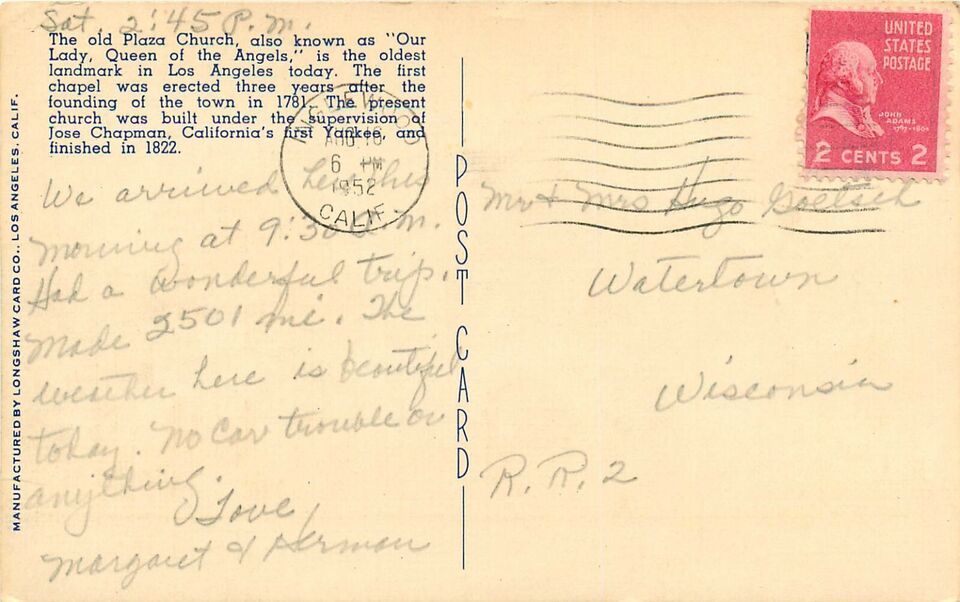 Sat. 2:45 P.M.
The old Plaza Church, also known as "Our
Lady, Queen of the Angels," is the oldest
landmark in Los Angeles today. The first
chapel was erected three years after the
founding of the town in 1781. The present
church was built under the supervision of
Jose Chapman, California's first Yankee, and
finished in 1822.
We arrived here this
morning at 9:30 a.m.
Had a wonderful trip.
Made 2501 mi. The
weather here is beautiful
today. No Car trouble or
anything.
Love,
Margaret & Herman
MANUFACTURED BY LONGSHAW CARD CO., LOS ANGELES, CALIF.
INGLEWOOD
AUG 16
6 PM
1952
CALIF.
POST CARD
UNITED
STATES
POSTAGE
JOHN
ADAMS
1797-1801
2 CENTS 2
Mr & Mrs Hugo Goetsch
Watertown
Wisconsin
R.R. 2